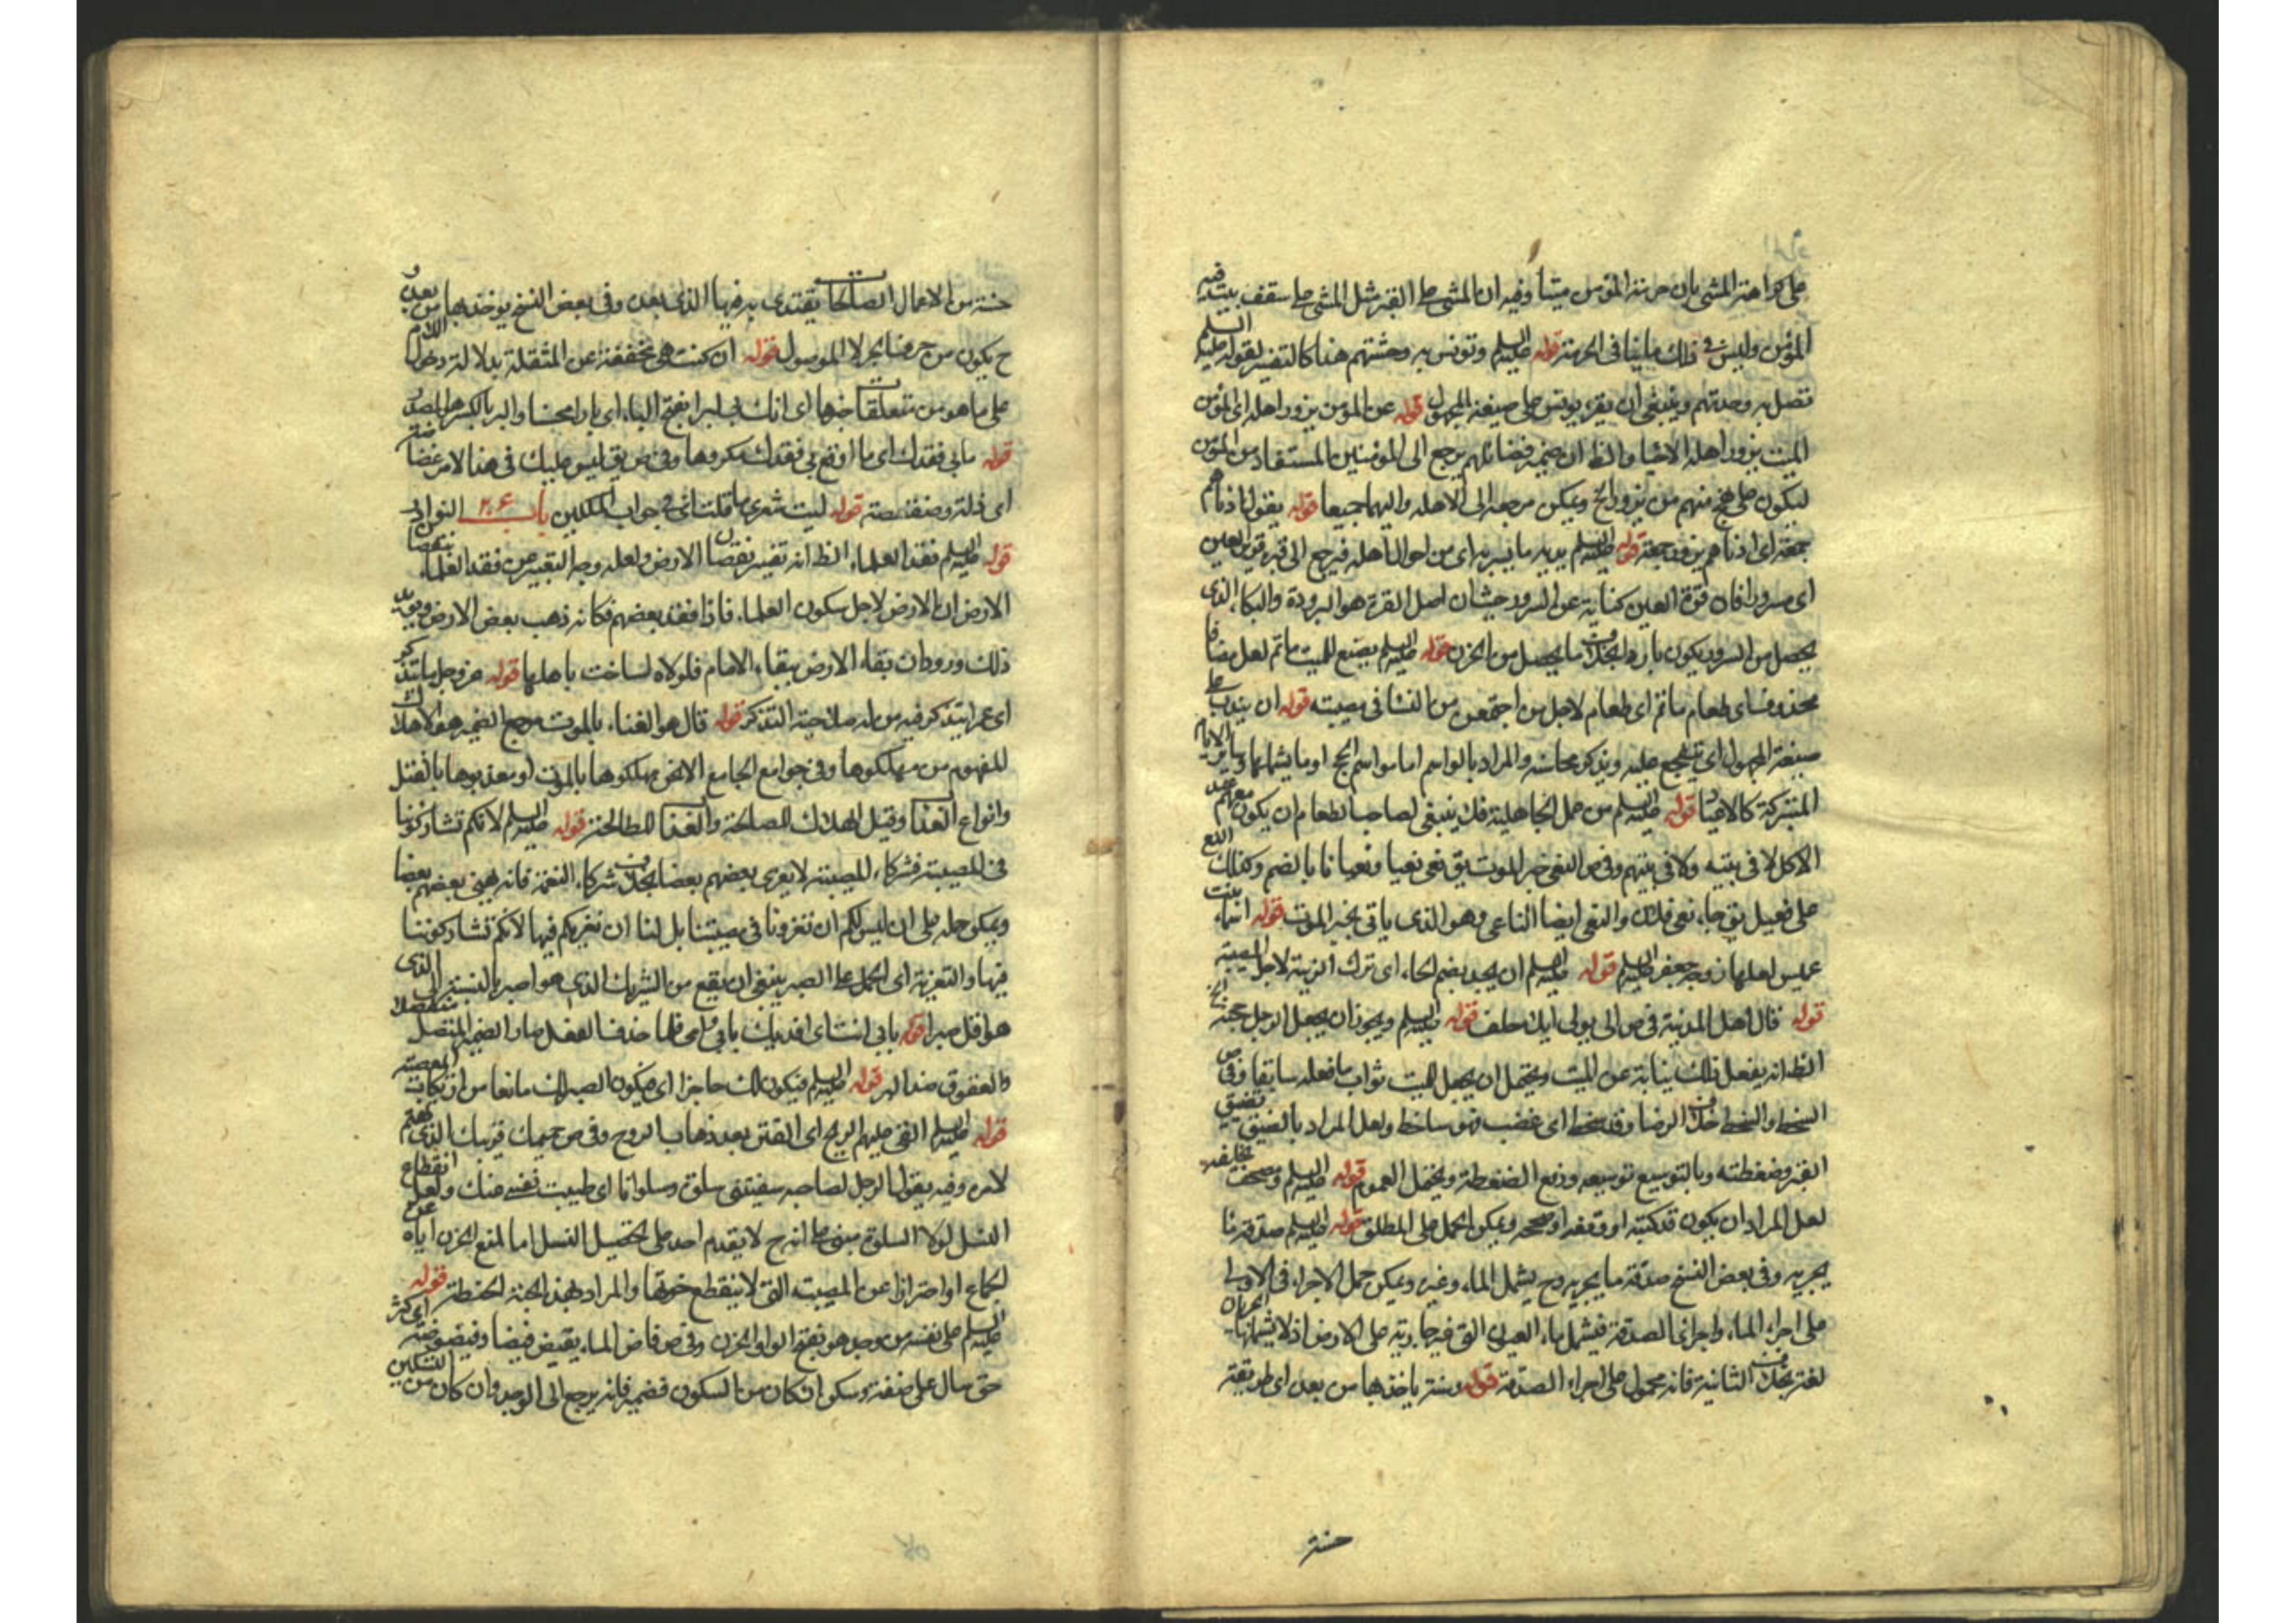 على كراهة المشي بان حرمة المؤمن ميتا وفيه ان المشي على القبر مثل المشي على سقف بيت فيه
المؤمن وليس في ذلك ما ينافي الحرمة قوله عليه السلم وتونس به وحشتهم هذا كالتفسير لقوله عليه السلم
تصل به وحدتهم وينبغي ان يقرء يونس على صيغة المجهول قوله عن المؤمن يزور اهله اى المؤمن
الميت يزور اهله الاحيا والظ ان ضمير فضائلهم يرجع الى المؤمنين المستفاد من المؤمن
ليكون على نهج منهم من يزور الخ ويمكن مرجعه الى الاهله واليهما جميعا قوله يقول ادناهم
جمعة اى ادناهم يزور جمعة قوله عليه السلم يريه ما يسر به اى من احوال اهله فيرجع الى قبره قرير العين
اى مسرورا فان قرة العين كناية عن السرور حيث ان اصل القرة هو البرودة والبكاء الذى
يحصل من السرور يكون باردا بخلاف ما يحصل من الحزن قوله عليه السلم يصنع للميت ماتم لعل مضافا
محذوف اى طعام ماتم اى طعام لاجل من اجتمعن من النساء في مصيبته قوله ان يندب على
صيغة المجهول اى يتفجع عليه ويذكر محاسنه والمراد بالمواسم اما مواسم الحج او ما يشابهها في ساير الايام
المتبركة كالاعياد قوله عليه السلم من عمل الجاهلية فك ينبغي لصاحب الطعام ان يكون معهم عند
الاكل لا في بيته ولا في بيتهم وفي ص النعي خبر الموت يق نعى نعيا ونعيانا بالضم وكذلك النعي
على فعيل يق جاء نعي فلان والنعي ايضا الناعي وهو الذى ياتي بخبر الموت قوله اسماء بنت
عميس لعلها زوجة جعفر عليه السلم قوله عليه السلم ان يحد بضم الحاء اى ترك الزينة لاجل المصيبة
قوله قال اهل المدينة في ص الى يولي ايلاء حلف قوله عليه السلم ويجوز ان يجعل الرجل حجته الخ
الظ انه يفعل ذلك نيابة عن الميت ويحتمل ان يجعل للميت ثواب ما فعله سابقا وفي ص
السخط والسخط خلاف الرضا وقد سخط اى غضب فهو ساخط ولعل المراد بالضيق تضيق
القبر وضغطته وبالتوسيع توسيعه ورفع الضغطة ويحتمل العموم قوله عليه السلم ومصحف يخلفه
لعل المراد ان يكون قد كتبه او وقفه او صححه ويمكن الحمل على المطلق قوله عليه السلم صدقة ما
يجريه وفي بعض النسخ صدقة ما يجريه وح يشمل الماء وغيره ويمكن حمل الاجراء في الاولى
على اجراء الماء واجراء الصدقة فيشملها العيون التي فيها جارية على الارض اذ لا يشملها الجريان
لغة بخلاف الثانية فانه محمول على اجراء الصدقة قوله وسنة ياخذ بها من بعده اى طريقة
حسنة
حسنة من الاعمال الصالحات يقتدى به فيها الذى بعده وفي بعض النسخ يوخذ بها من بعده و
ح يكون من حرفا لجر لا الموصول قوله ان كنت هي مخففة عن المثقلة بدلالة دخول اللام
على ما هو من متعلقات خبرها اى انك بي لبرا بفتح الباء اى بارا محسنا والبر بالكسر هو المصدر
قوله ما بي فقدك اى ما اوقع بي فقدك مكروها وفي ص يق ليس عليك في هذا الامر غضاضة
اى ذلة ومنقصة قوله ليت شعرى ما قلت اى في جواب الملكين باب ٢٠٤ النوادر
قوله عليه السلم فقد العلماء الظ انه تفسير نقصان الارض ولعله وجه التعبير عن فقد العلماء بنقصان
الارض ان الارض لاجل سكون العلماء فاذا فقد بعضهم فكانه ذهب بعض الارض ويؤيد
ذلك ورود ان بقاء الارض ببقاء الامام فلولاه لساخت باهلها قوله عز وجل ما يتذكر
اى عمرا يتذكر فيه من له صلاحية التذكر قوله قال هو الفناء بالموت مرجع الضمير هو الاهلاك
المفهوم من مهلكوها وفي جوامع الجامع الارض مهلكوها بالموت او معذبوها بالقتل
وانواع العذاب وقيل الهلاك للصالحة والعذاب للطالحة قوله عليه السلم لانكم تشاركونا
في المصيبة فشركاء المصيبة لا يعزى بعضهم بعضا بخلاف شركاء النعمة فانه يهني بعضهم بعضا
ويمكن حمله على ان ليس لكم ان تعزونا في مصيبتنا بل لنا ان نعزيكم فيها لانكم تشاركوننا
فيها والتعزية اى الحمل على الصبر ينبغي ان يقع من الشريك الذى هو اصبر بالنسبة الى الذى
هو اقل صبرا قوله بابي انت اى افديك بابي وامي فلما حذف الفعل صار الضمير المتصل منفصلا
والعقوق ضد البر قوله عليه السلم فيكون لك حاجزا اى فيكون الصبر لك مانعا من ارتكاب المعصية
قوله عليه السلم القى عليهم الريح اى النتن بعد ذهاب الروح وفي ص حميمك قريبك الذى تهتم
لامره وفيه يقول الرجل لصاحبه سقيتني سلوة وسلوانا اى طيبت نفسي عنك ولعل انقطاع
النسل لولا السلوة مبني على انه ح لا يقدم احد على تحصيل النسل اما لمنع الحزن اياه عن
الجماع او احترازا عن المصيبة التي لا ينقطع حزنها والمراد بهذه الحبة الحنطة قوله
عليه السلم على نفسه من وجد هو بفتح الواو الحزن وفي ص فاض الماء يفيض فيضا وفيضوضة اى كثر
حتى سال على ضفة وسكن ان كان من السكون فضميره فانه يرجع الى الوجد وان كان من التسكين